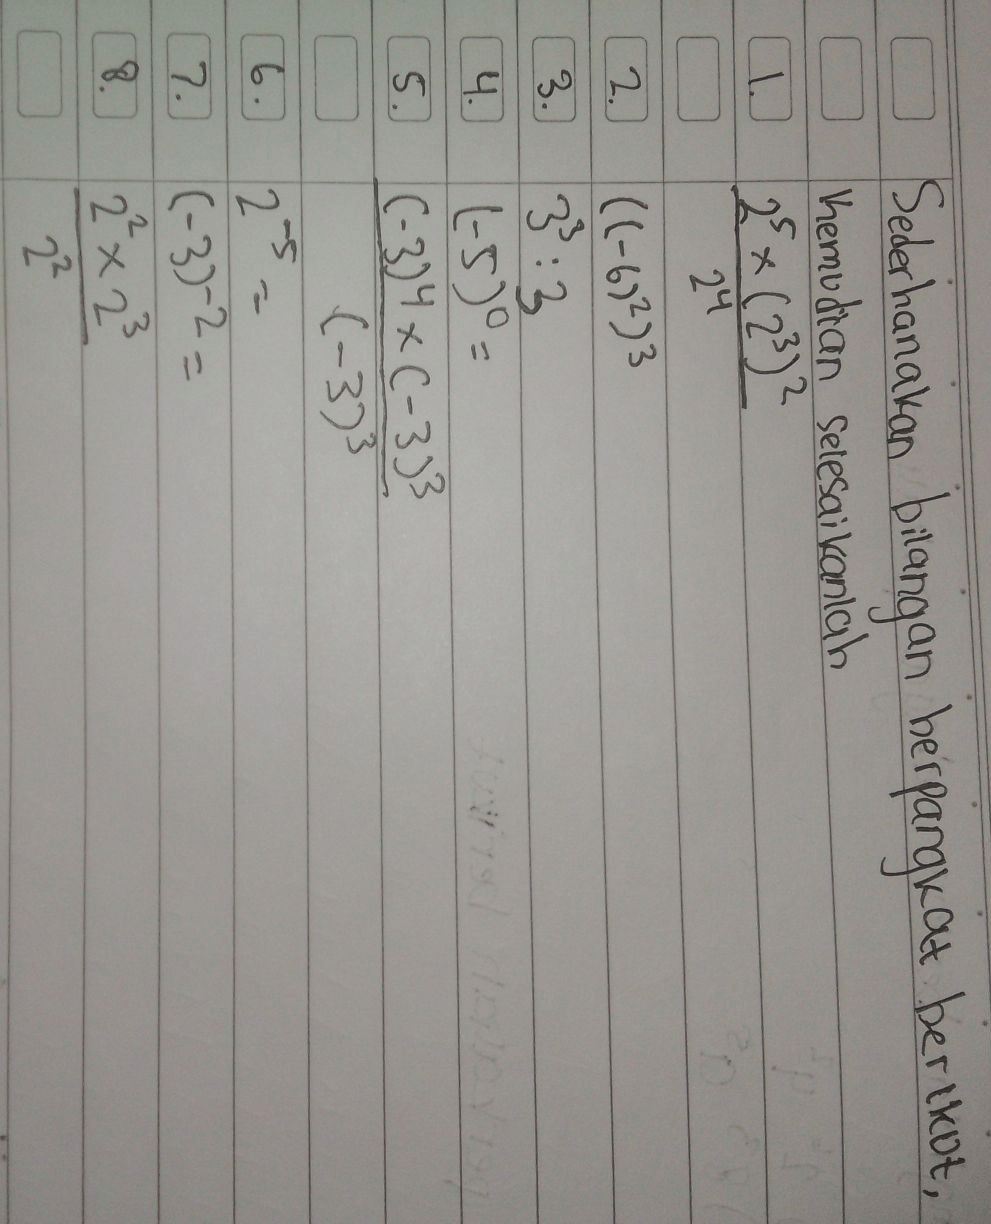 Sederhanakan bilangan berpangkat berikut,
kemudian selesaikanlah
1. 2⁵ × (2³)²
2⁴
2. ((-6)²)³
3. 3³ : 3
4. (-5)⁰ =
5. (-3)⁴ × (-3)³
(-3)³
6. 2⁻⁵ =
7. (-3)⁻² =
8. 2² × 2³
2²